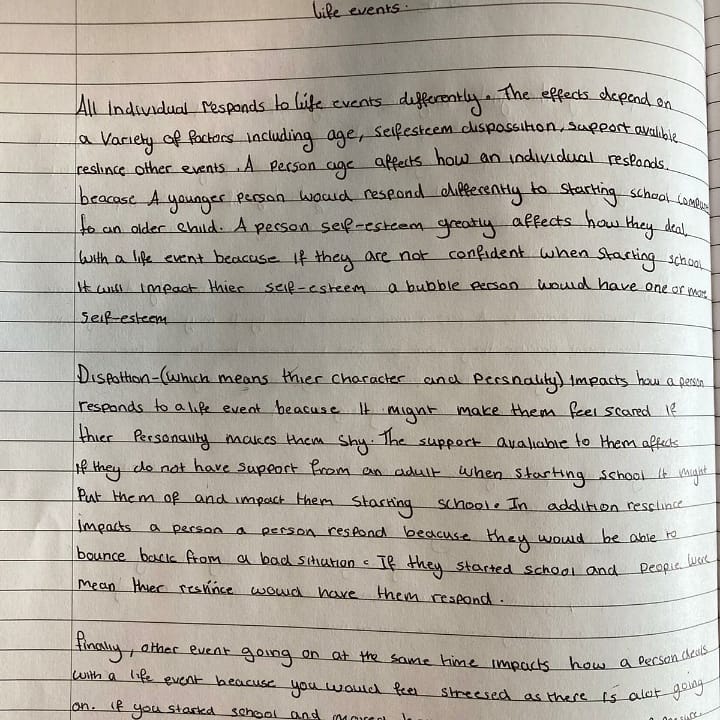 life events.
All Individual responds to life events differently. The effects depend on
a variety of factors including age, selfesteem dispossition, support avalible
reslince other events. A person age affects how an individual responds.
beacase A younger person would respond differently to starting school
to an older child. A person self-esteem greatly affects how they deal
with a life event beacuse if they are not confident when starting school
It will impact thier self-esteem a bubble person would have one or more
self-esteem
Dispottion-(which means thier character and persnality) impacts how a person
responds to a life event beacuse It might make them feel scared if
thier Personality makes them shy. The support avaliable to them affects
if they do not have support from an adult when starting school it might
Put them of and impact them starting school. In addition resclince
impacts a person a person respond beacuse they would be able to
bounce back from a bad sitation. If they started school and people were
mean thier reslince would have them respond.
finally, other event going on at the same time impacts how a person deals
with a life event beacuse you would feel streesed as there is alot going
on. if you started school and